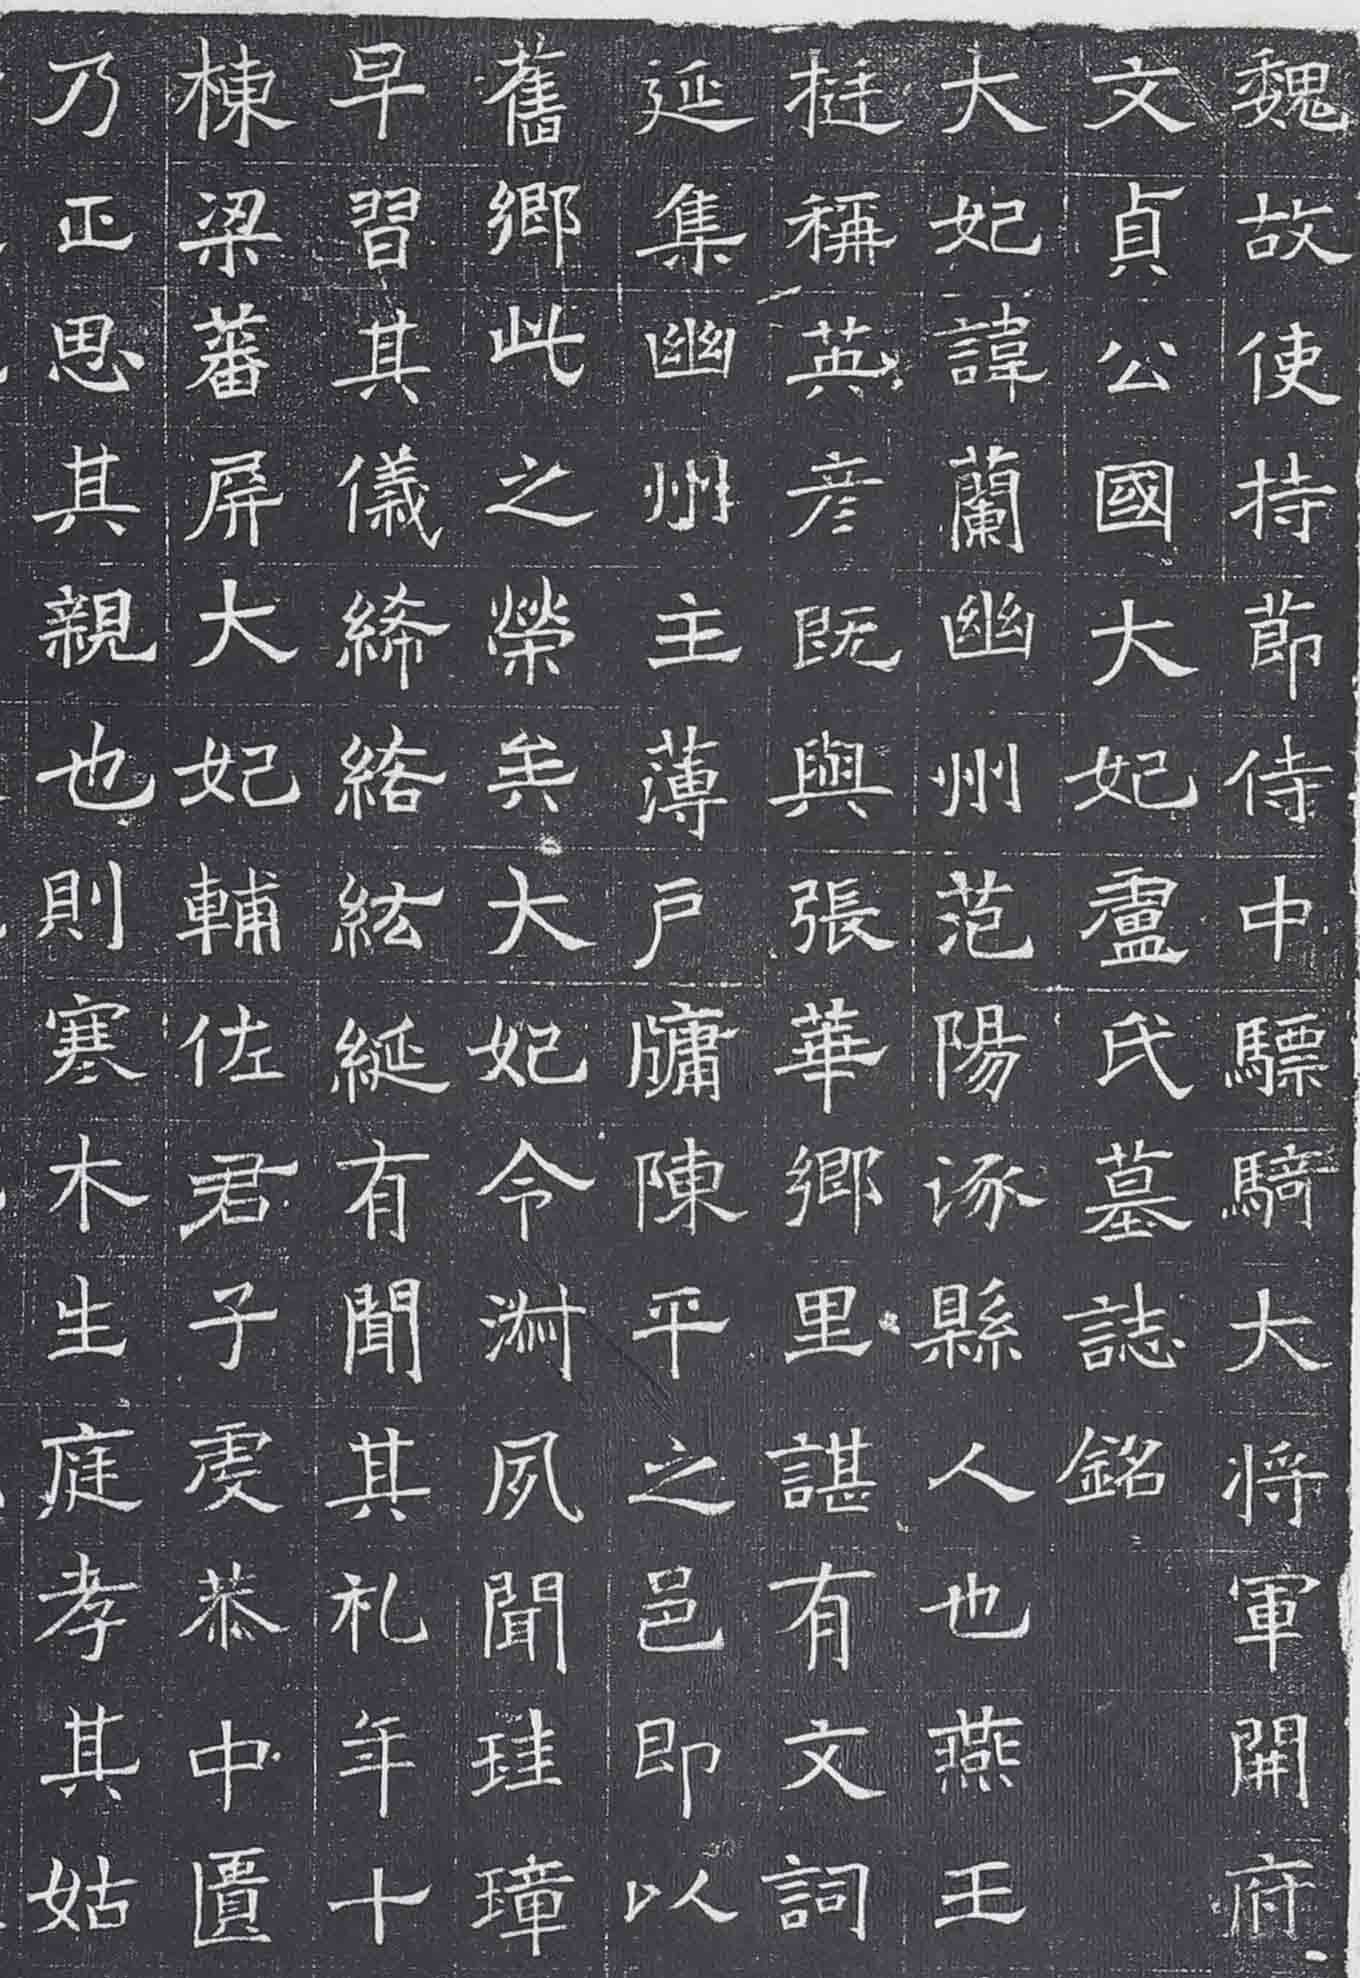 魏故使持節侍中驃騎大将軍開府
文貞公國大妃盧氏墓誌銘
大妃諱蘭幽州范陽涿縣人也燕王
挺稱英彦既與張華鄉里諶有文詞
延集幽州主薄戶牖陳平之邑即以
舊鄉此之榮矣大妃令淵夙聞珪璋
早習其儀絺綌紘綖有聞其礼年十
棟梁蕃屏大妃輔佐君子虔恭中匱
乃正思其親也則寒木生庭孝其姑